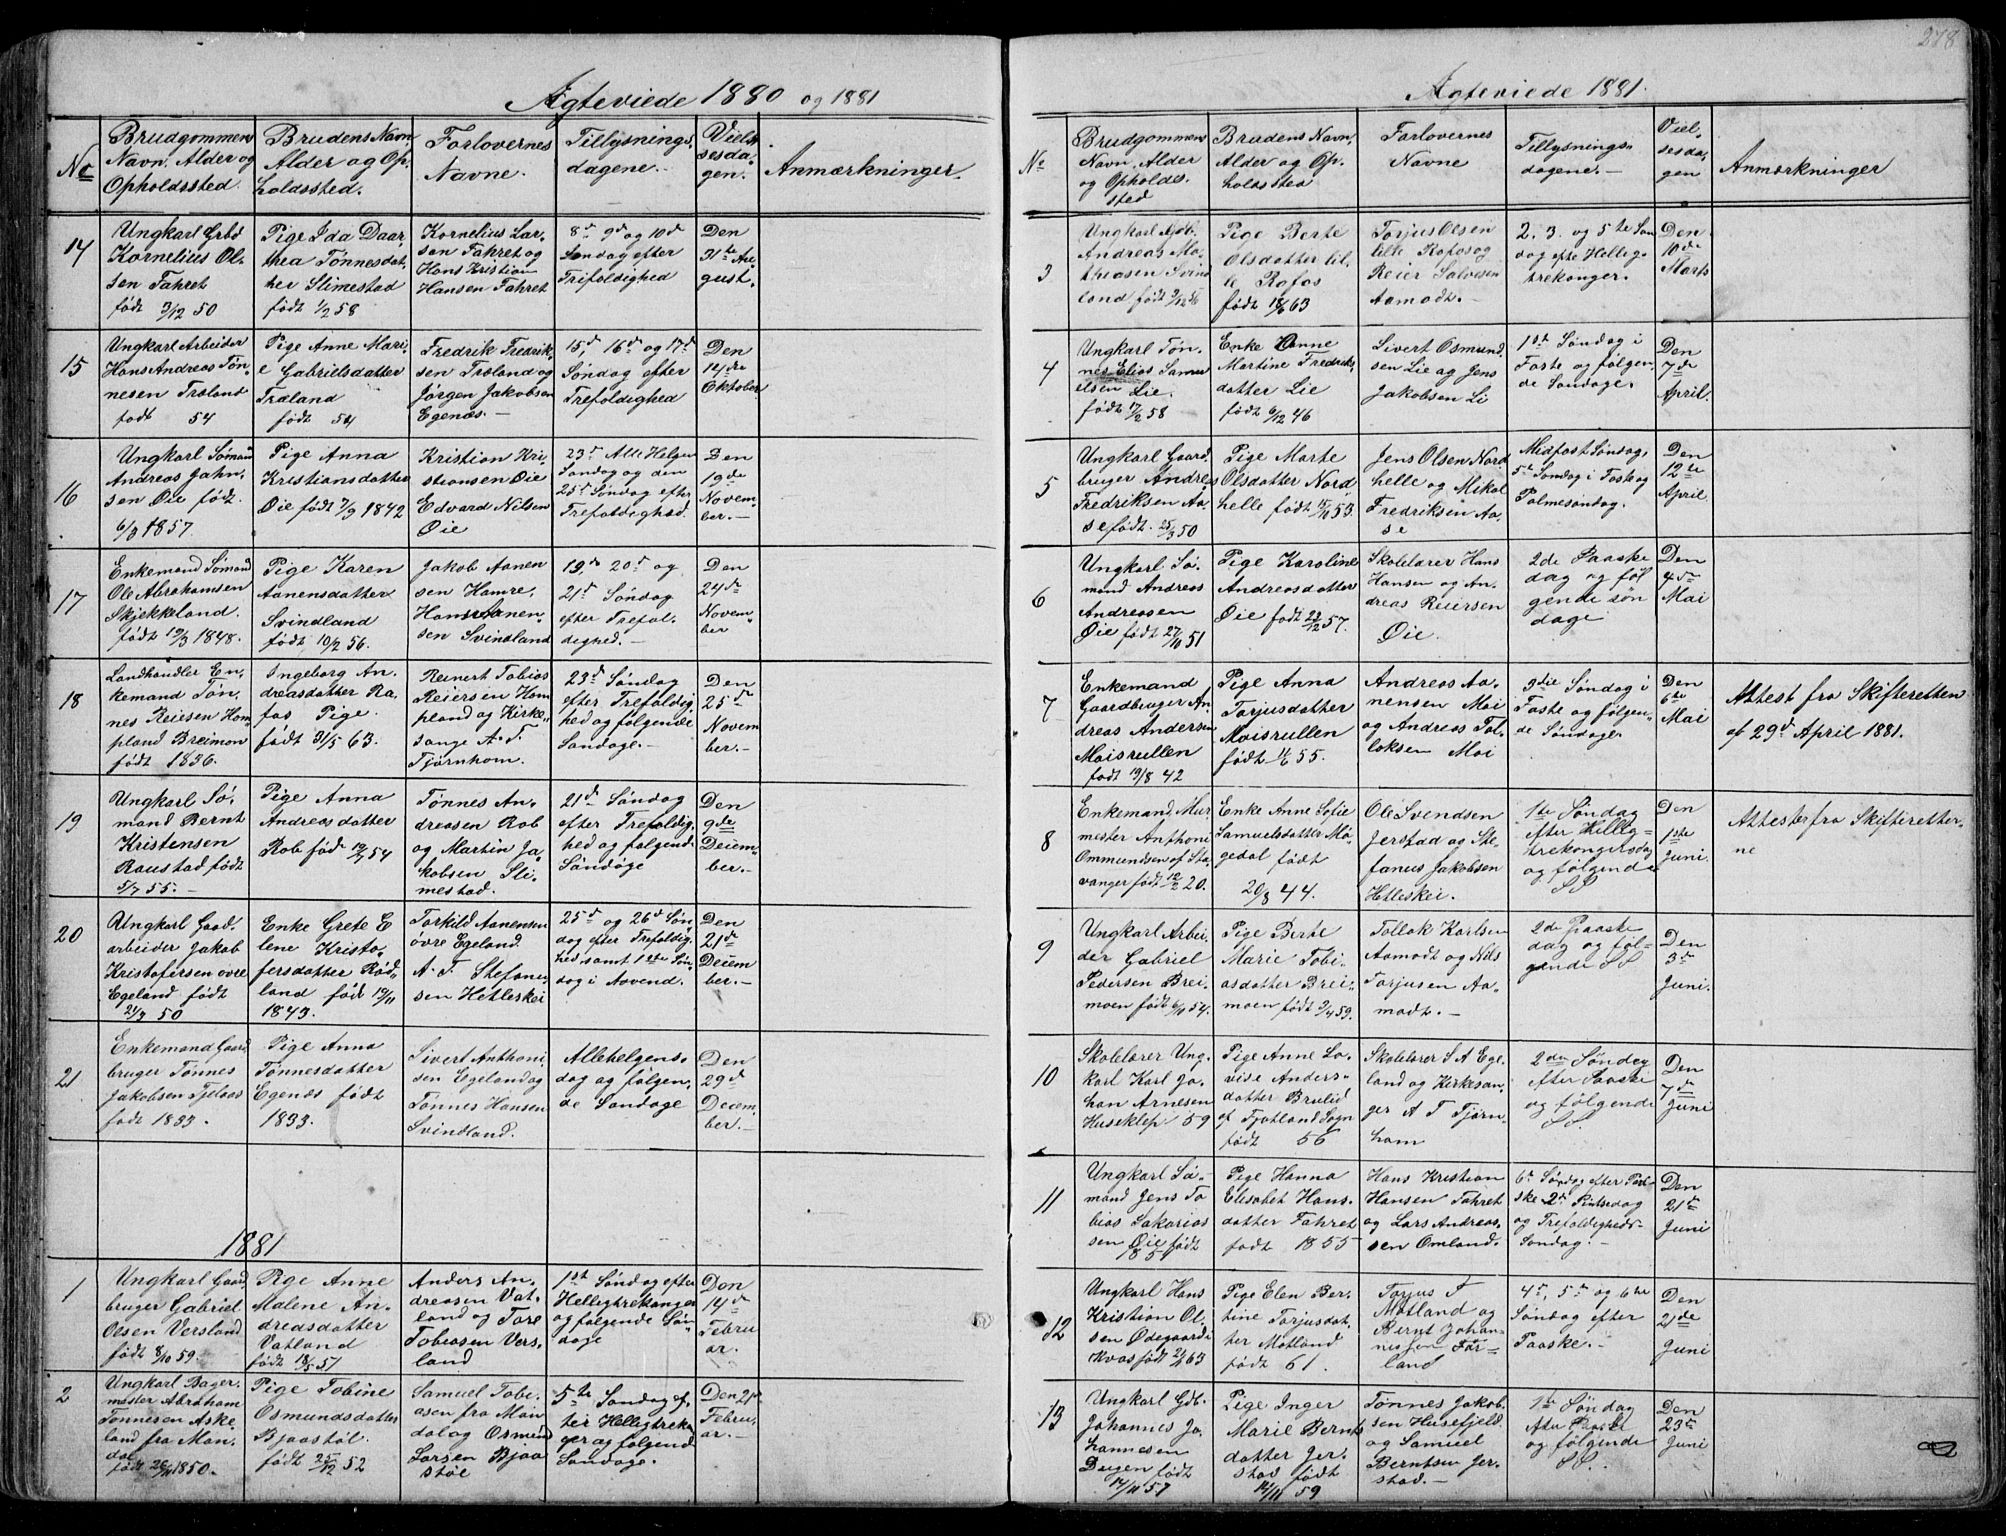 278
Ægteviede 1880 og 1881
No
Brudgommens
Navn, Alder og
Opholdssted.
Brudens Navn,
Alder og Op,
holdssted.
Forlovernes
Navne.
Tillysnings,
dagene.
Viel,
sesda,
gen.
Anmærkninger.
14
Ungkarl
Kornelius Ol-
sen Fahret
født 3/12 50
Pige Ida Daar,
thea Tønnesdat,
ter Slimestad
født 1/2 58
Kornelius Lar-
sen Fahret og
Hans Kristian
Hansen Fahret
8d 9d og 10d
Søndag efter
Trifoldighed
Den
31te Au
gust.
15
Ungkarl Arbeider
Hans Andreas Tøn-
nesen Træland
født 54
Pige Anne Mari-
e Gabrielsdatter
Træland
født 54
Fredrik Fredrik-
sen Træland og
Jørgen Jakobsen
Egenæs.-
15d, 16d og 17d
Søndag efter
Trefoldighed
Den
14de
Oktober
16
Ungkarl Sømand
Andreas Jahn,
sen Øie født
6/3 1857.
Pige Anna
Kristiansdatter
Øie født 7/9 1842
Kristian Kri-
stiansen Øie
Edvard Nilsen
Øie
23d Alle Helgen
Søndag og den
25d Søndag efter
Trefoldighed.
Den
19de
Novem-
ber.-
17
Enkemand Sømand
Ole Abrahamsen
Skjekkeland.
født 19/3 1848.
Pige Karen
Aanensdatter
Svindland
født 10/2 56.
Jakob Aanen
sen Hamre,
Hans Aanen-
sen Svindland
19d, 20d og
21d Søndag
efter Trefol-
dighed.-
Den
24de
Novem-
ber
18
Landhandler En-
kemand Tøn,
nes Reiesen Hom
pland Breimon
født 1836.
Ingeborg An,
dreasdatter Ra,
fos Pige.
født 31/5 63.
Reinert Tobias
Reiersen Hom
pland og Kirke-
sange A. T.
Tjørnhom.
23d Søndag
efter Trefoldig,
hed og følgende
Søndage.-
Den
25de
Novem
ber.-
19
Ungkarl Sø,
mand Bernt
Kristensen
Raustad født
5/7 55.-
Pige Anna
Andreasdatter
Rob fød 19/7 54
Tønnes An-
dreasen Rob
og Martin Ja,
kobsen Sli-
mestad.
21de Søndag
efter Trefoldig,
hed og følgend.
Søndage
Den
9de
Deiem-
ber.-
20
Ungkarl Gaard,
arbeider Jakob
Kristofersen øvre
Egeland født
21/3 50
Enke Grete E
lene Kristo,
fersdatter Rød,
land fød 19/11
1843.
Torkild Aanensen
øvre Egeland.
A. T. Stefanus
sen Hetleskei
25d og 26d Søn,
dag efter Trefoldig,
hed samt 1ste Søn,
dag i Advend.
Den
21de
Deiem
ber.-
21
Enkemand Gaard
bruger Tønnes
Jakobsen
født 1833.
Pige Anna
Tønnesdatter
Egenæs født
1833.
Sivert Anthoni,
sen Egeland og
Tønnes Hansen
Svindland.
Allehelgens,
dag og følgen,
de Søndage
Den
29d
Deiem,
ber.-
1881
1
Ungkarl Gaard,
bruger Gabriel
Olsen Versland
født 8/10 59.
Pige Anne
Malene An,
dreasdatter
Vatland
født 18/5 57
Anders An-
dreasen Vat-
land og Tore
Tobiasen Vers-
land
1st Søndag efter
Helligtrekonger
og følgende Søn-
dage
Den
14de
Febru
ar.
2
Ungkarl Bager,
mester Abraham
Tønnesen Aske
land fra Man,
dal
født 26/11 1850.
Pige Tobine
Osmundsdatter
Bjaastøl.
født 25/12 52
Samuel Tobi-
asen fra Man
dal og Osmund
Larsen Bjaa
støl
5te Søndag ef,
ter Helligtrekon
ger og følgend
Søndage.
Den 21de
Febru,
ar.
Ægteviede 1881.
No
Brudgommens
Navn, Alder
og Opholds,
sted
Brudens Navn,
Alder og Op,
holdssted
Forlovernes
Navne
Tillysnings-
dagene.-
Viel,
sesda,
gen
Anmærkninger
3
Ungkarl
Andreas Ma-
thiasen Svind
land født
Pige Berte
Olsdatter lil-
le Rafos
født 18/6 63
Torjus Olsen
lille Rafos og
Reier Salvesen
Aamodt.-
2. 3. og 5te Søn
dag efte Hellig-
trekonger.-
Den
10de
Marts
4
Ungkarl Tøn,
nes Elias Samu
elsen Lie.
født 17/2 58
Enke Anne
Martine Fredriks
datter Lie
født 6/12 46
Sivert Osmund,
sen Lie og Jens
Jakobsen Li
1st Søndag i
Faste og følgen-
de Søndage.
Den
7de
April.
5
Ungkarl Gaard,
bruger Andreas
Fredriksen Aa-
se født. 25/3 50
Pige Marte
Olsdatter Nord
helle født 15/10 53.
Jens Olsen Nord
helle og Mikal
Fredriksen Aa-
se
Midfastsøndag,
5te Søndag i Faste og
Palmesøndag.
Den
12te
April
6
Ungkarl Sø,
mand Andreas
Andreasen
Øie født 27/10 51
Pige Karoline
Andreasdatter
Øie født 22/12 57.
Skolelærer Hans
Hansen og An-
dreas Reiersen
Øie.
2de Paaske
dag og føl
gende søn
dage
Den
4de
Mai
7
Enkemand
Gaardbruger An
dreas Andersen
Moisrullen
født 19/8 42
Pige Anna
Torjusdatter
Moisrullen
født 1/6 55.
Andreas Aa-
nensen Moi
og Andreas Tol-
loksen Moi
3die Søndag i
Faste og følgen-
de Søndage
Den
6te
Mai
Attest fra Skifteretten
af 29d April 1881.
8
Enkemand, Mur
mester Anthoni
Ommundsen af Sta,
vanger født 12/2 20.
Enke Anne Sofie
Samuelsdatter Mø-
gedal født
20/8 44.
Ole Svendsen
Jerstad og Ste-
fanus Jakobsen
Hetleskei.
1te Søndag
efter Hellig-
trekongersdag
og følgende
SS
Den
1ste
Juni.
Attester fra Skifteretter-
ne
9
Ungkarl Arbei,
der Gabriel
Pedersen Brei-
moen født 6/10 54.
Pige Berte
Marie Tobi-
asdatter Brei-
moen født 2/4 59.
Tollak Karlsen
Aamodt og Nils
Torjusen Aa-
modt.-
2de Paaske
dag og føl-
gende SS
Den
3de
Juni.
10
Skolelærer Ung,
karl Karl Jo-
han Arnesen
Huseklep 59
Pige Anne Lo-
vise Anders-
datter Brulid
af Fjotland Sogn
født 56
Skolelærer S A Ege-
land og Kirkesan-
ger A T Tjørn-
hom
2den Søndag
efter Paaske
og følgende
SS.
Den
7de
Juni
11
Ungkarl Sø-
mand Jens To
bias Sakarias
sen Øie født
1851
Pige Hanna
Elisabet Hans-
datter Fahret
født 1855
Hans Kristian
Hansen Fahret
og Lars Andreas-
sen Omland.
6te Søndag efter Paa-
ske 2de Pintsedag
og Trefoldigheds-
Søndag.-
Den
21de
Juni
12
Ungkarl Hans
Kristian Ol-
sen Ødegaard i
Kvas født 24/1 63
Pige Elen Ber-
tine Torjusdat-
ter Motland
født 61.
Torjus T
Motland og
Bernt Johan-
nessen Før-
land
4de, 5te og 6te
Søndag efter
Paaske.-
Den
21de
Juni
13
Ungkarl Gdb.
Johannes Jo,
hannesen
Dugen født
14/11 57
Pige Inger
Marie Bernts
datter Jer-
stad født
14/11 59
Tønnes Jakob-
sen Husefjeld.
og Samuel
Berntsen Jer-
stad.-
1te Søndag
efter Paaske
og følgende
SS.
Den
23de
Juni